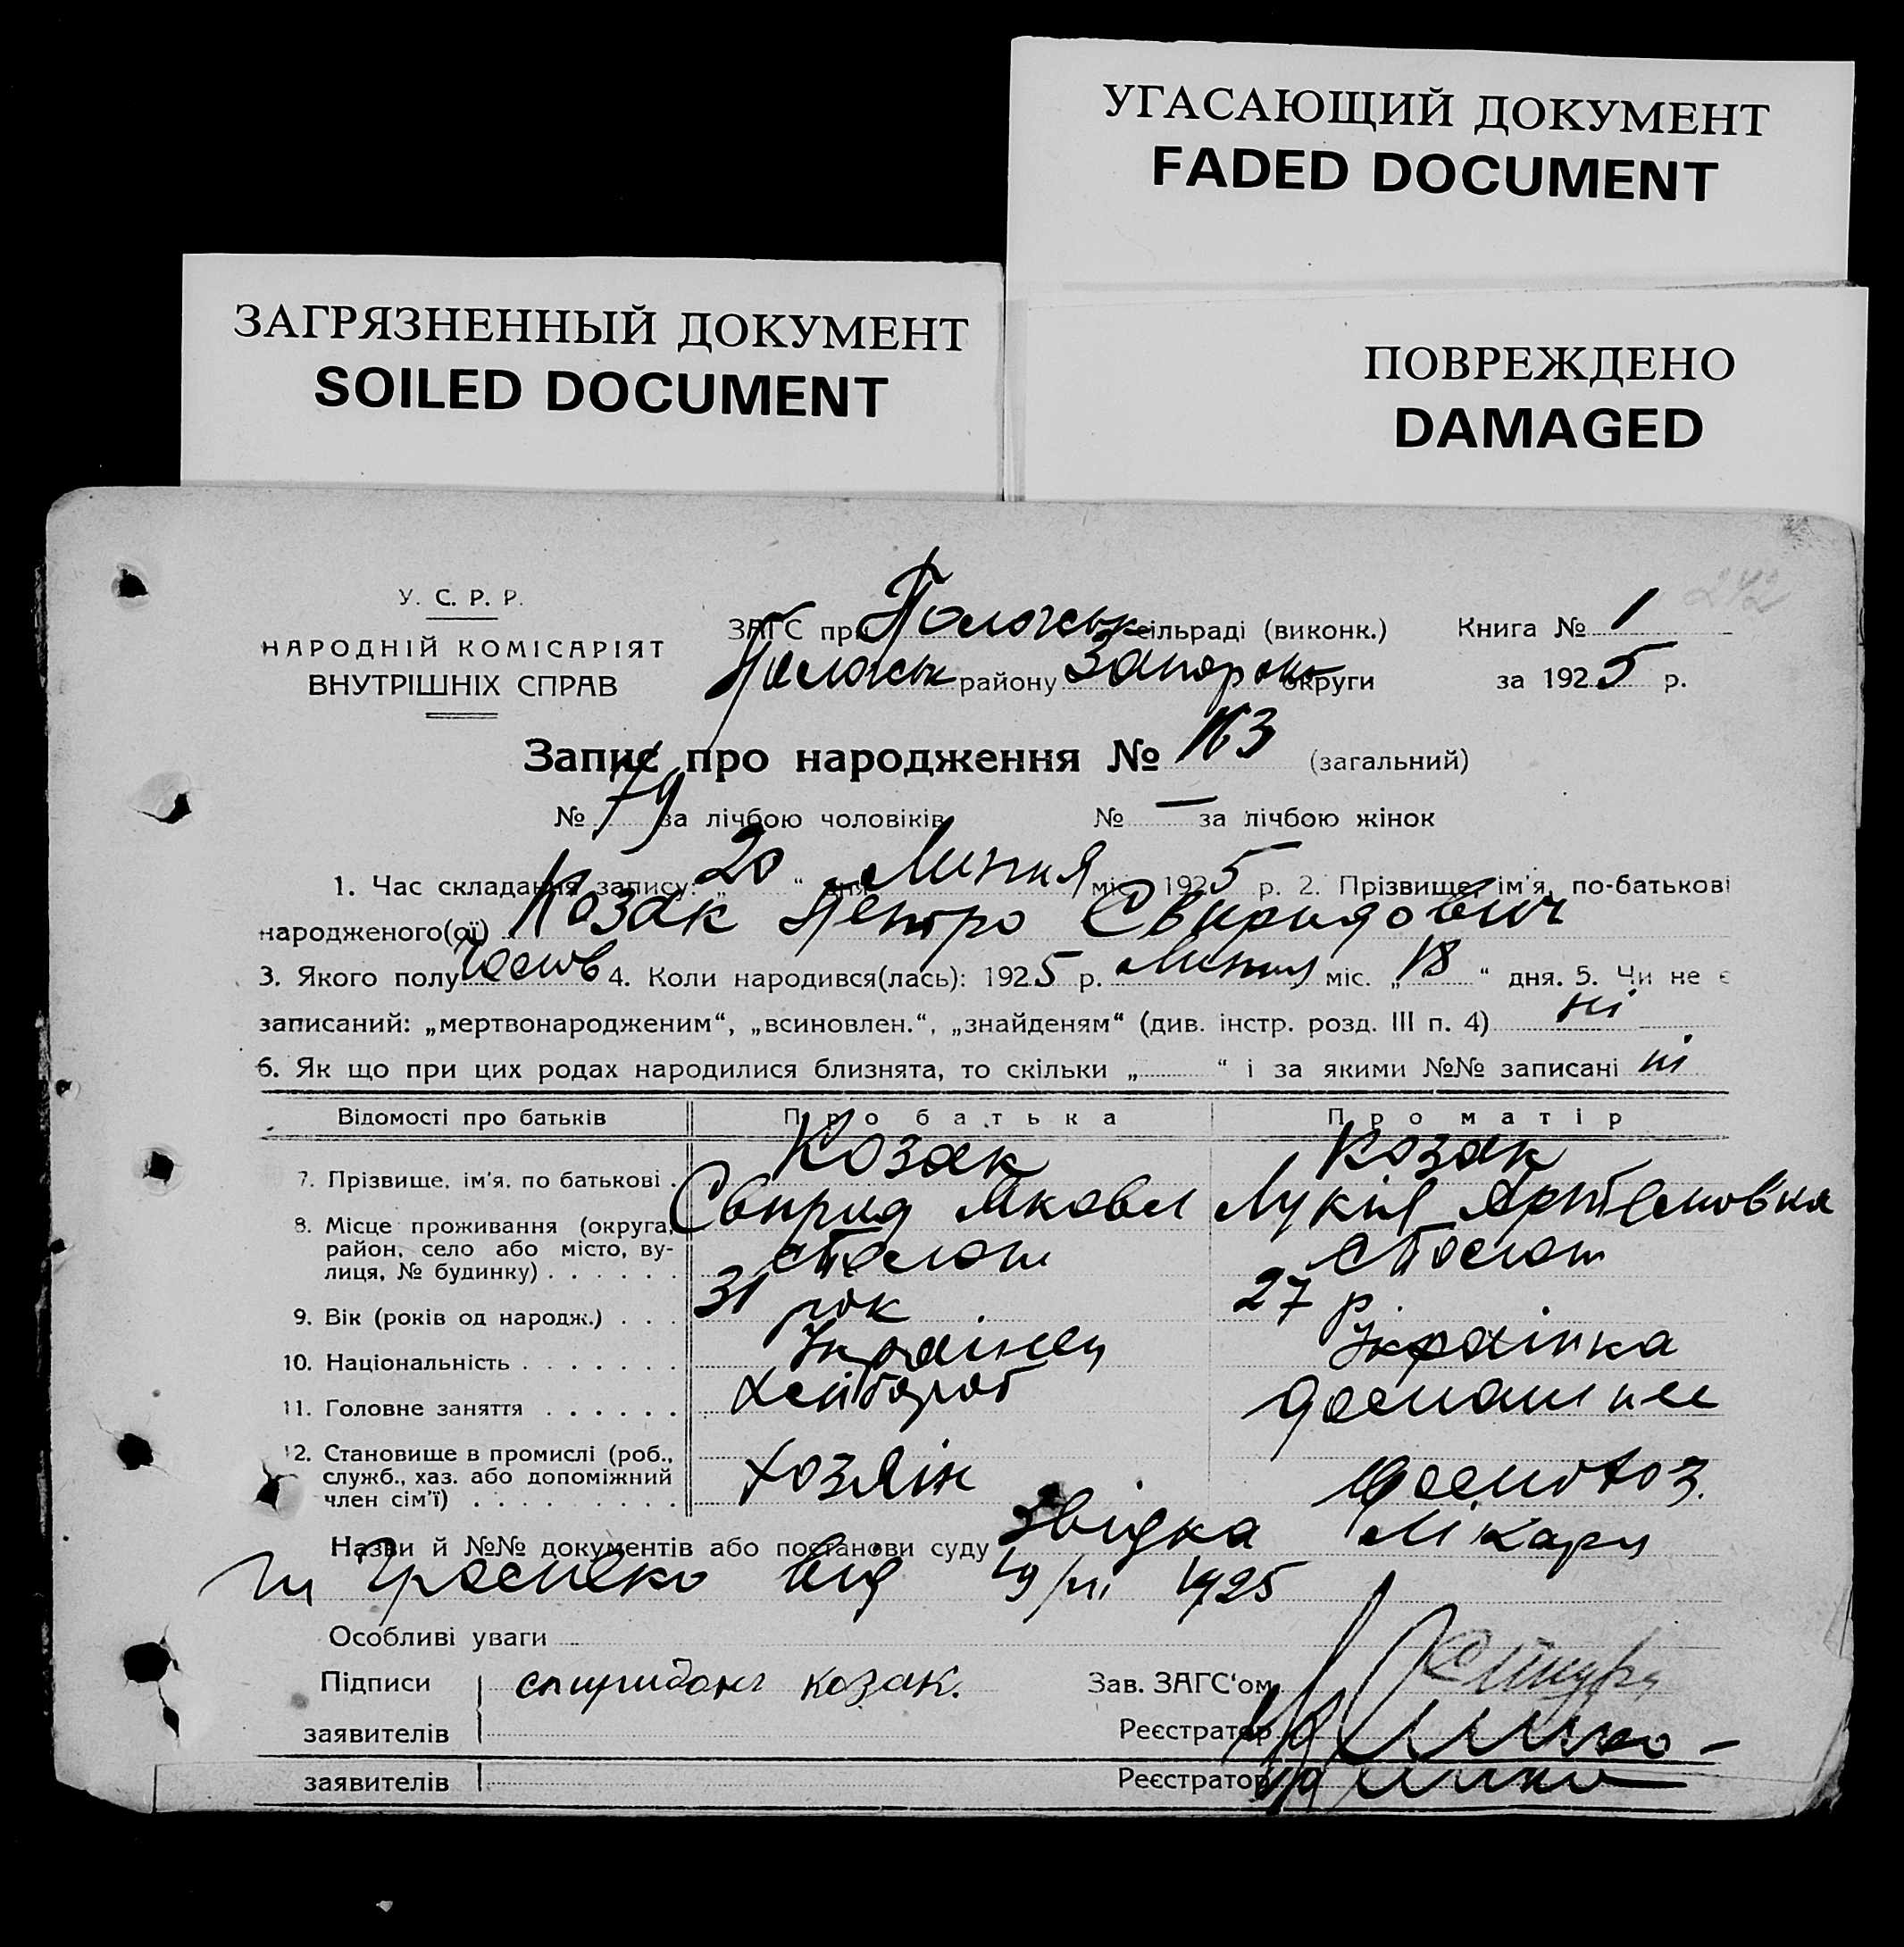 УГАСАЮЩИЙ ДОКУМЕНТ
FADED DOCUMENT
ЗАГРЯЗНЕННЫЙ ДОКУМЕНТ
SOILED DOCUMENT
ПОВРЕЖДЕНО
DAMAGED
242
У. С. Р. Р.
НАРОДНІЙ КОМІСАРІЯТ
ВНУТРІШНІХ СПРАВ
ЗАГС при Положськ сільраді (виконк.) Книга № 1
Положськ району Запорож округи за 1925 р.
Запис про народження № 163 (загальний)
№ 79 за лічбою чоловіків № — за лічбою жінок
1. Час складання запису: „20“ дня Липня міс. 1925 р. 2. Прізвище, ім'я, по-батькові
народженого(ої) Козак Петро Свиридович
3. Якого полу чолов 4. Коли народився(лась): 1925 р. Липня міс. „18“ дня. 5. Чи не є
записаний: „мертвонародженим“, „всиновлен.“, „знайденям“ (див. інстр. розд. III п. 4) ні
6. Як що при цих родах народилися близнята, то скільки „ “ і за якими №№ записані ні
Відомості про батьків Про батька Про матір
7. Прізвище, ім'я, по батькові . Козак Свирид Яковл Козак Лукія Артемовна
8. Місце проживання (округа, район, село або місто, вулиця, № будинку) . . . . . .
9. Вік (років од народж.) . . . 31 рок 27 р.
10. Національність . . . . . . . Українец Українка
11. Головне заняття . . . . . . хлібороб домашнее
12. Становище в промислі (роб., служб., хаз. або допоміжний член сім'ї) . . . . . . . . . хозяін домохоз.
Назви й №№ документів або постанови суду Звідка Лікаря
від 19/VII 1925
Особливі уваги
Підписи спиридон козак. Зав. ЗАГС'ом
заявителів Реєстратор
заявителів Реєстратор